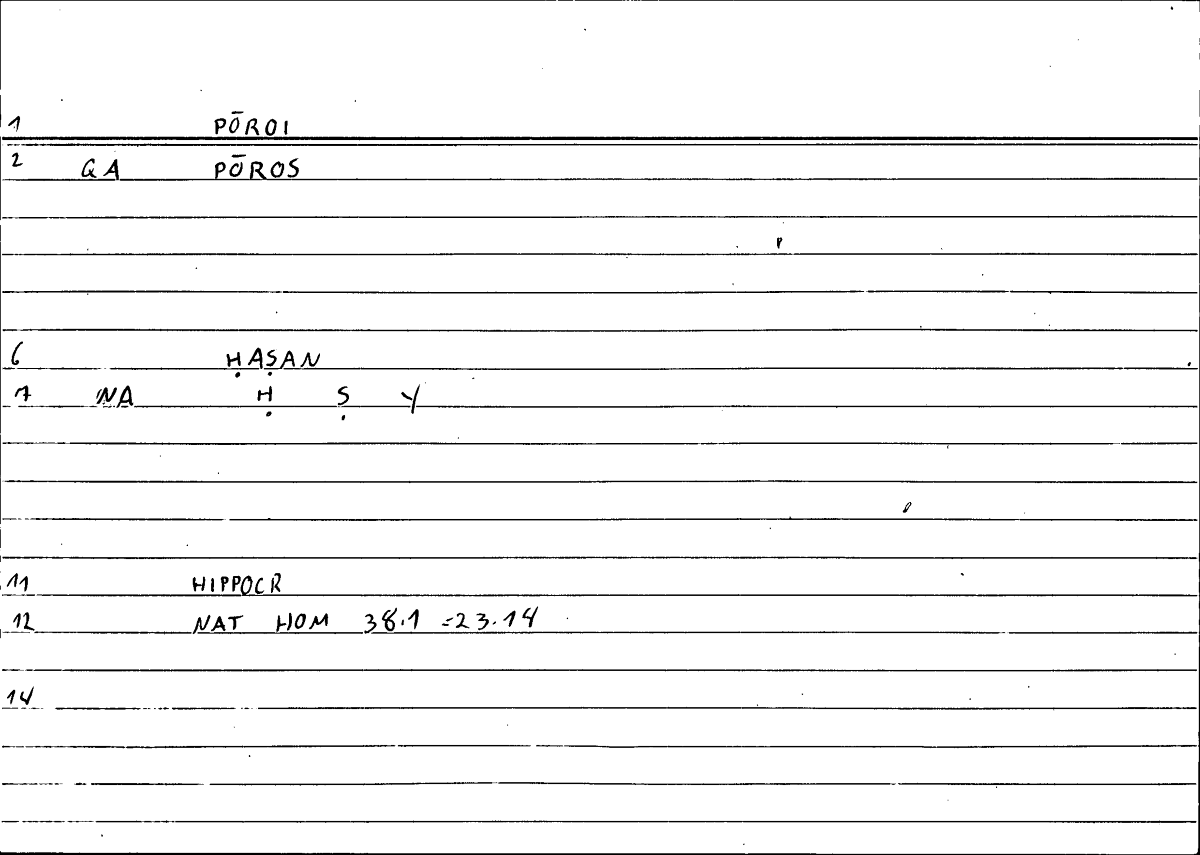 1 PŌROI
2 GA PŌROS
6 ḤAṢAN
7 NA Ḥ Ṣ Y
11 HIPPOCR
12 NAT HOM 38.1 =23.14
14